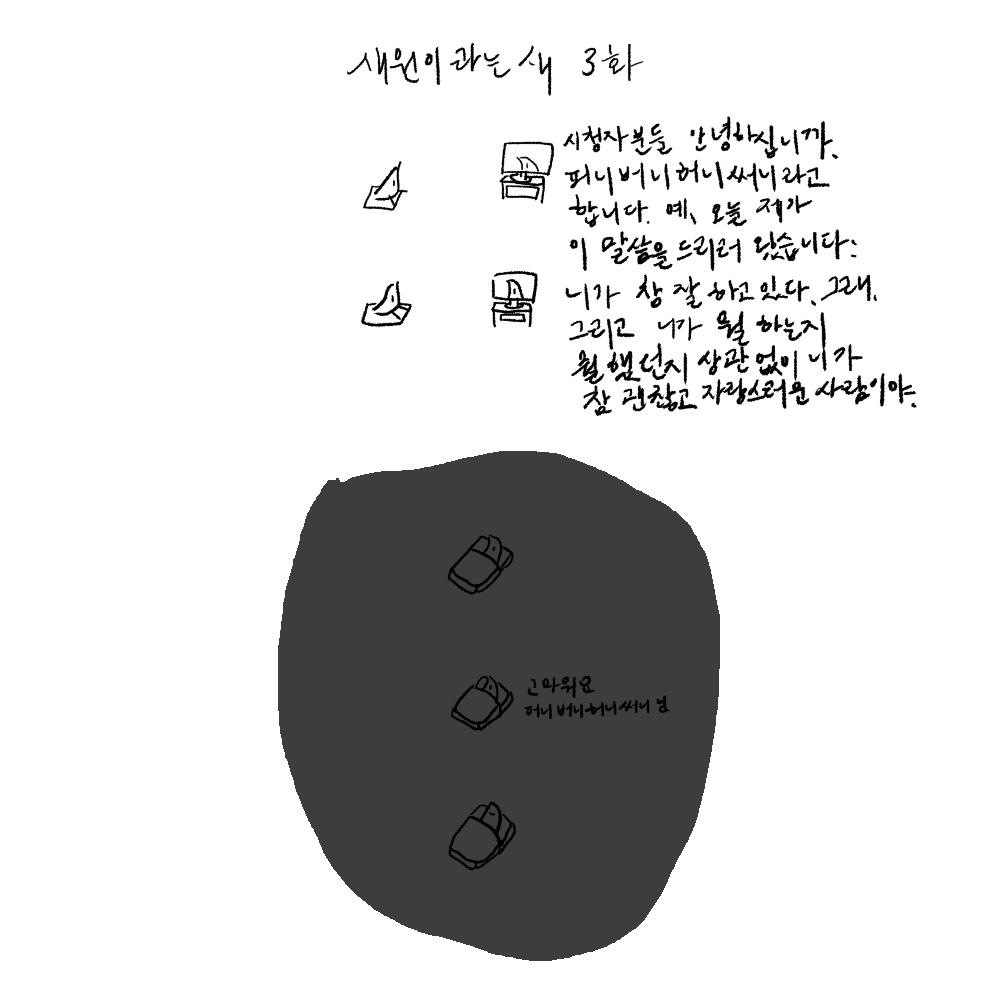 새원이라는 새 3화
시청자분들 안녕하십니까.
퍼니버니허니써니라고
합니다. 예, 오늘 제가
이 말씀을 드리러 왔습니다:
니가 참 잘 하고있다. 그래.
그리고 니가 뭘 하는지
뭘 했던지 상관없이 니가
참 괜찮고 자랑스러운 사람이야.
고마워요
퍼니버니허니써니 님